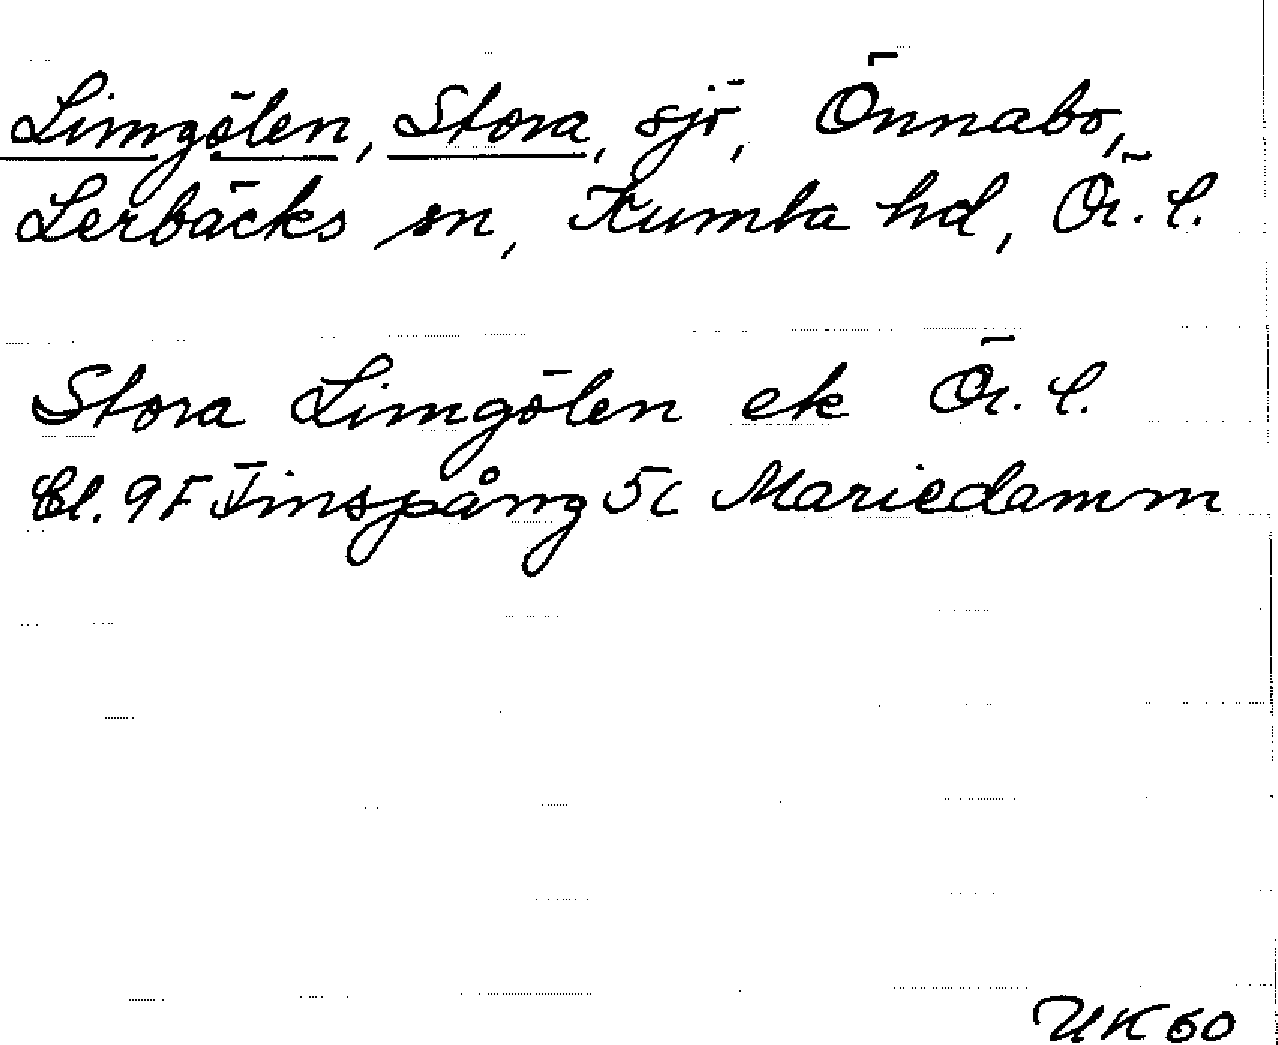 Limgölen, Stora, sjö, Önnabo,
Lerbäcks sn, Kumla hd, Ör. l.
Stora Limgölen ek Ör. l.
Bl. 9F Finspång 5c Mariedamm
UK60